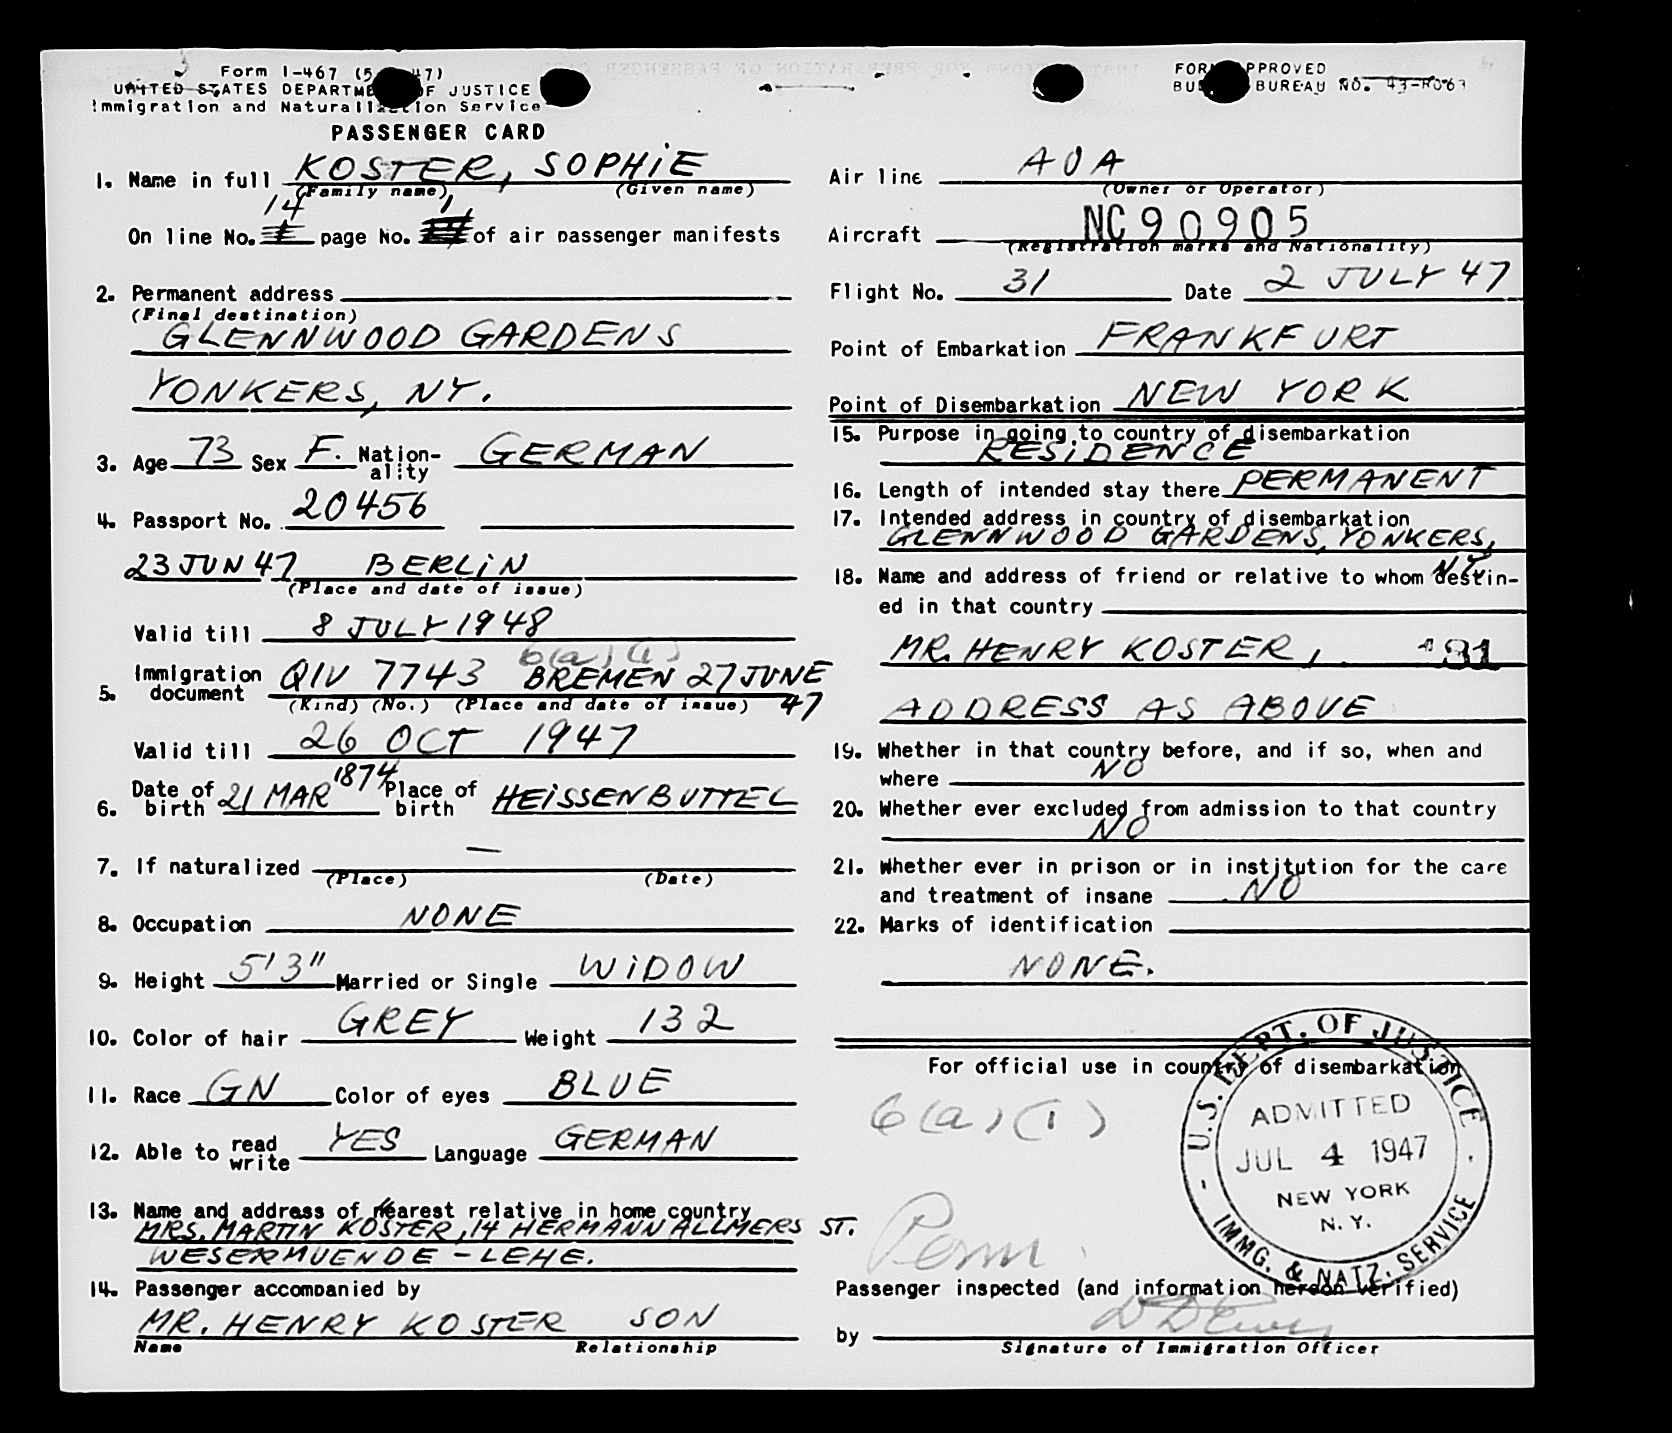 Form I-467 (5 47)
UNITED STATES DEPARTMENT OF JUSTICE
Immigration and Naturalization Service
PASSENGER CARD
FORM APPROVED
BUREAU NO. 43-R063
1. Name in full KOSTER, SOPHIE
(Family name) (Given name)
14 1
On line No. page No. of air passenger manifests
2. Permanent address
(Final destination)
GLENNWOOD GARDENS
YONKERS, NY.
3. Age 73 Sex F. Nation-ality GERMAN
4. Passport No. 20456
23 JUN 47 BERLIN
(Place and date of issue)
Valid till 8 JULY 1948
6(a)(1)
5. Immigration document QIV 7743 BREMEN 27 JUNE 47
(Kind) (No.) (Place and date of issue)
Valid till 26 OCT 1947
6. Date of birth 21 MAR 1874 Place of birth HEISSENBUTTEL
7. If naturalized —
(Place) (Date)
8. Occupation NONE
9. Height 5'3" Married or Single WIDOW
10. Color of hair GREY Weight 132
11. Race GN Color of eyes BLUE
12. Able to read write YES Language GERMAN
13. Name and address of nearest relative in home country
MRS. MARTIN KOSTER, 14 HERMANN ALLMERS ST.
WESERMUENDE - LEHE.
14. Passenger accompanied by
MR. HENRY KOSTER SON
Name Relationship
Air line AOA
(Owner or Operator)
Aircraft NC90905
(Registration marks and Nationality)
Flight No. 31 Date 2 JULY 47
Point of Embarkation FRANKFURT
Point of Disembarkation NEW YORK
15. Purpose in going to country of disembarkation
RESIDENCE
16. Length of intended stay there PERMANENT
17. Intended address in country of disembarkation
GLENNWOOD GARDENS, YONKERS, N.Y.
18. Name and address of friend or relative to whom destin-
ed in that country
MR. HENRY KOSTER, 31
ADDRESS AS ABOVE
19. Whether in that country before, and if so, when and
where NO
20. Whether ever excluded from admission to that country
NO
21. Whether ever in prison or in institution for the care
and treatment of insane NO
22. Marks of identification
NONE.
For official use in country of disembarkation
6(a)(1)
Perm.
U.S. DEPT. OF JUSTICE
ADMITTED
JUL 4 1947
NEW YORK
N.Y.
IMMG. & NATZ. SERVICE
Passenger inspected (and information hereon verified)
by
Signature of Immigration Officer